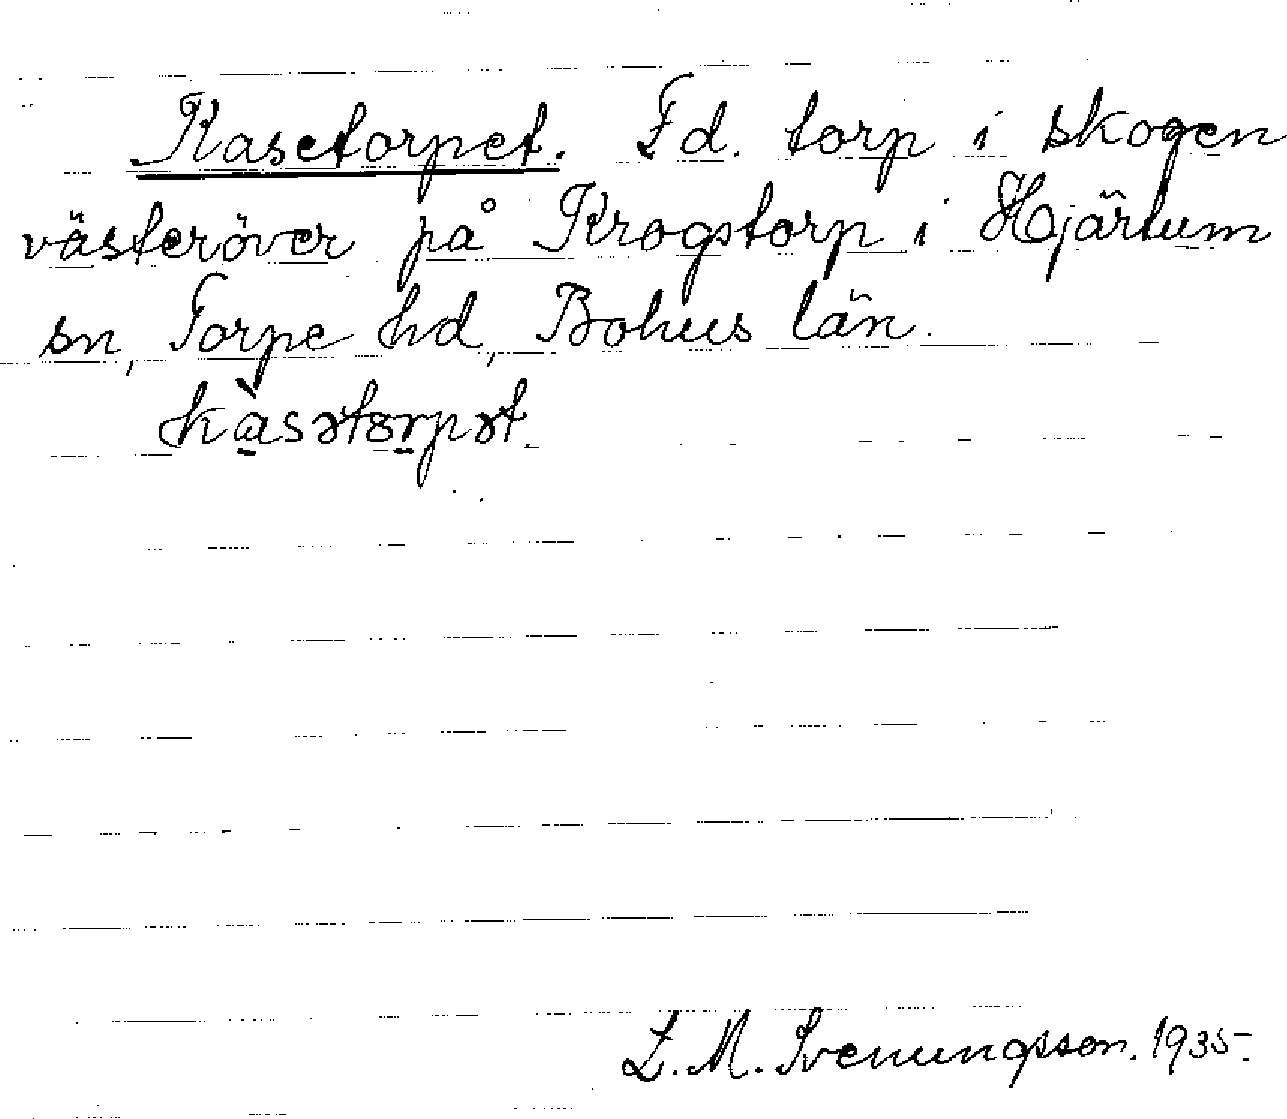 Kasetorpet. Fd. torp i skogen
västeröver på Krogstorp i Hjärtum
sn, Torpe hd, Bohus län.
kàsətɔrpət.
L. M. Svenungsson. 1935.